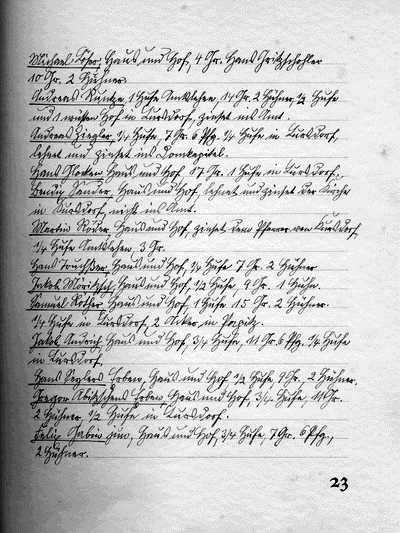 Michael Töser, Haus und Hof, 4 Gr. Hans Fritzschsler
10 Gr. 2 Hühner
Andreas Kuntze, 1 Hufe Amtlehen, 14 Gr. 2 Hühner. ½ Hufe
und 1 wüsten Hof in Lursdorf, zinset ins Amt.
Andreas Ziegler, ¼ Hufe. 7 Gr. 6 Pfg. ¼ Hufe in Lursdorf,
lehnet und zinset ins Domkapitel.
Hans Haus und Hof 17 Gr. 1 Hufe in Lursdorf.
Sander, Haus und Hof, lehnet und zinset der Kirche
in Lursdorf, nicht ins Amt.
Martin Röder. Haus und Hof, zinset dem Pfarrer von Lursdorf,
¼ Hufe Amtlehen, 3 Gr.
Hans Haus und Hof, ¼ Hufe 7 Gr. 2 Hühner
Jakob Haus und Hof, ½ Hufe 9 Gr. 1 Huhn.
Samuel Rother, Haus und Hof, 1 Hufe 15 Gr. 2 Hühner.
¼ Hufe in Lursdorf, 2 Acker in
Jakob Haus und Hof, ¾ Hufe, 11 Gr. 6 Pfg. ¼ Hufe
in Lursdorf.
Hans Erben, Haus und Hof ½ Hufe, 9 Gr., 2 Hühner.
Gregor Erben, Haus und Hof, ¾ Hufe, 11 Gr.
2 Hühner. ½ Hufe in Lursdorf.
Haus und Hof, ¾ Hufe, 7 Gr. 6 Pfg.,
2 Hühner.
23